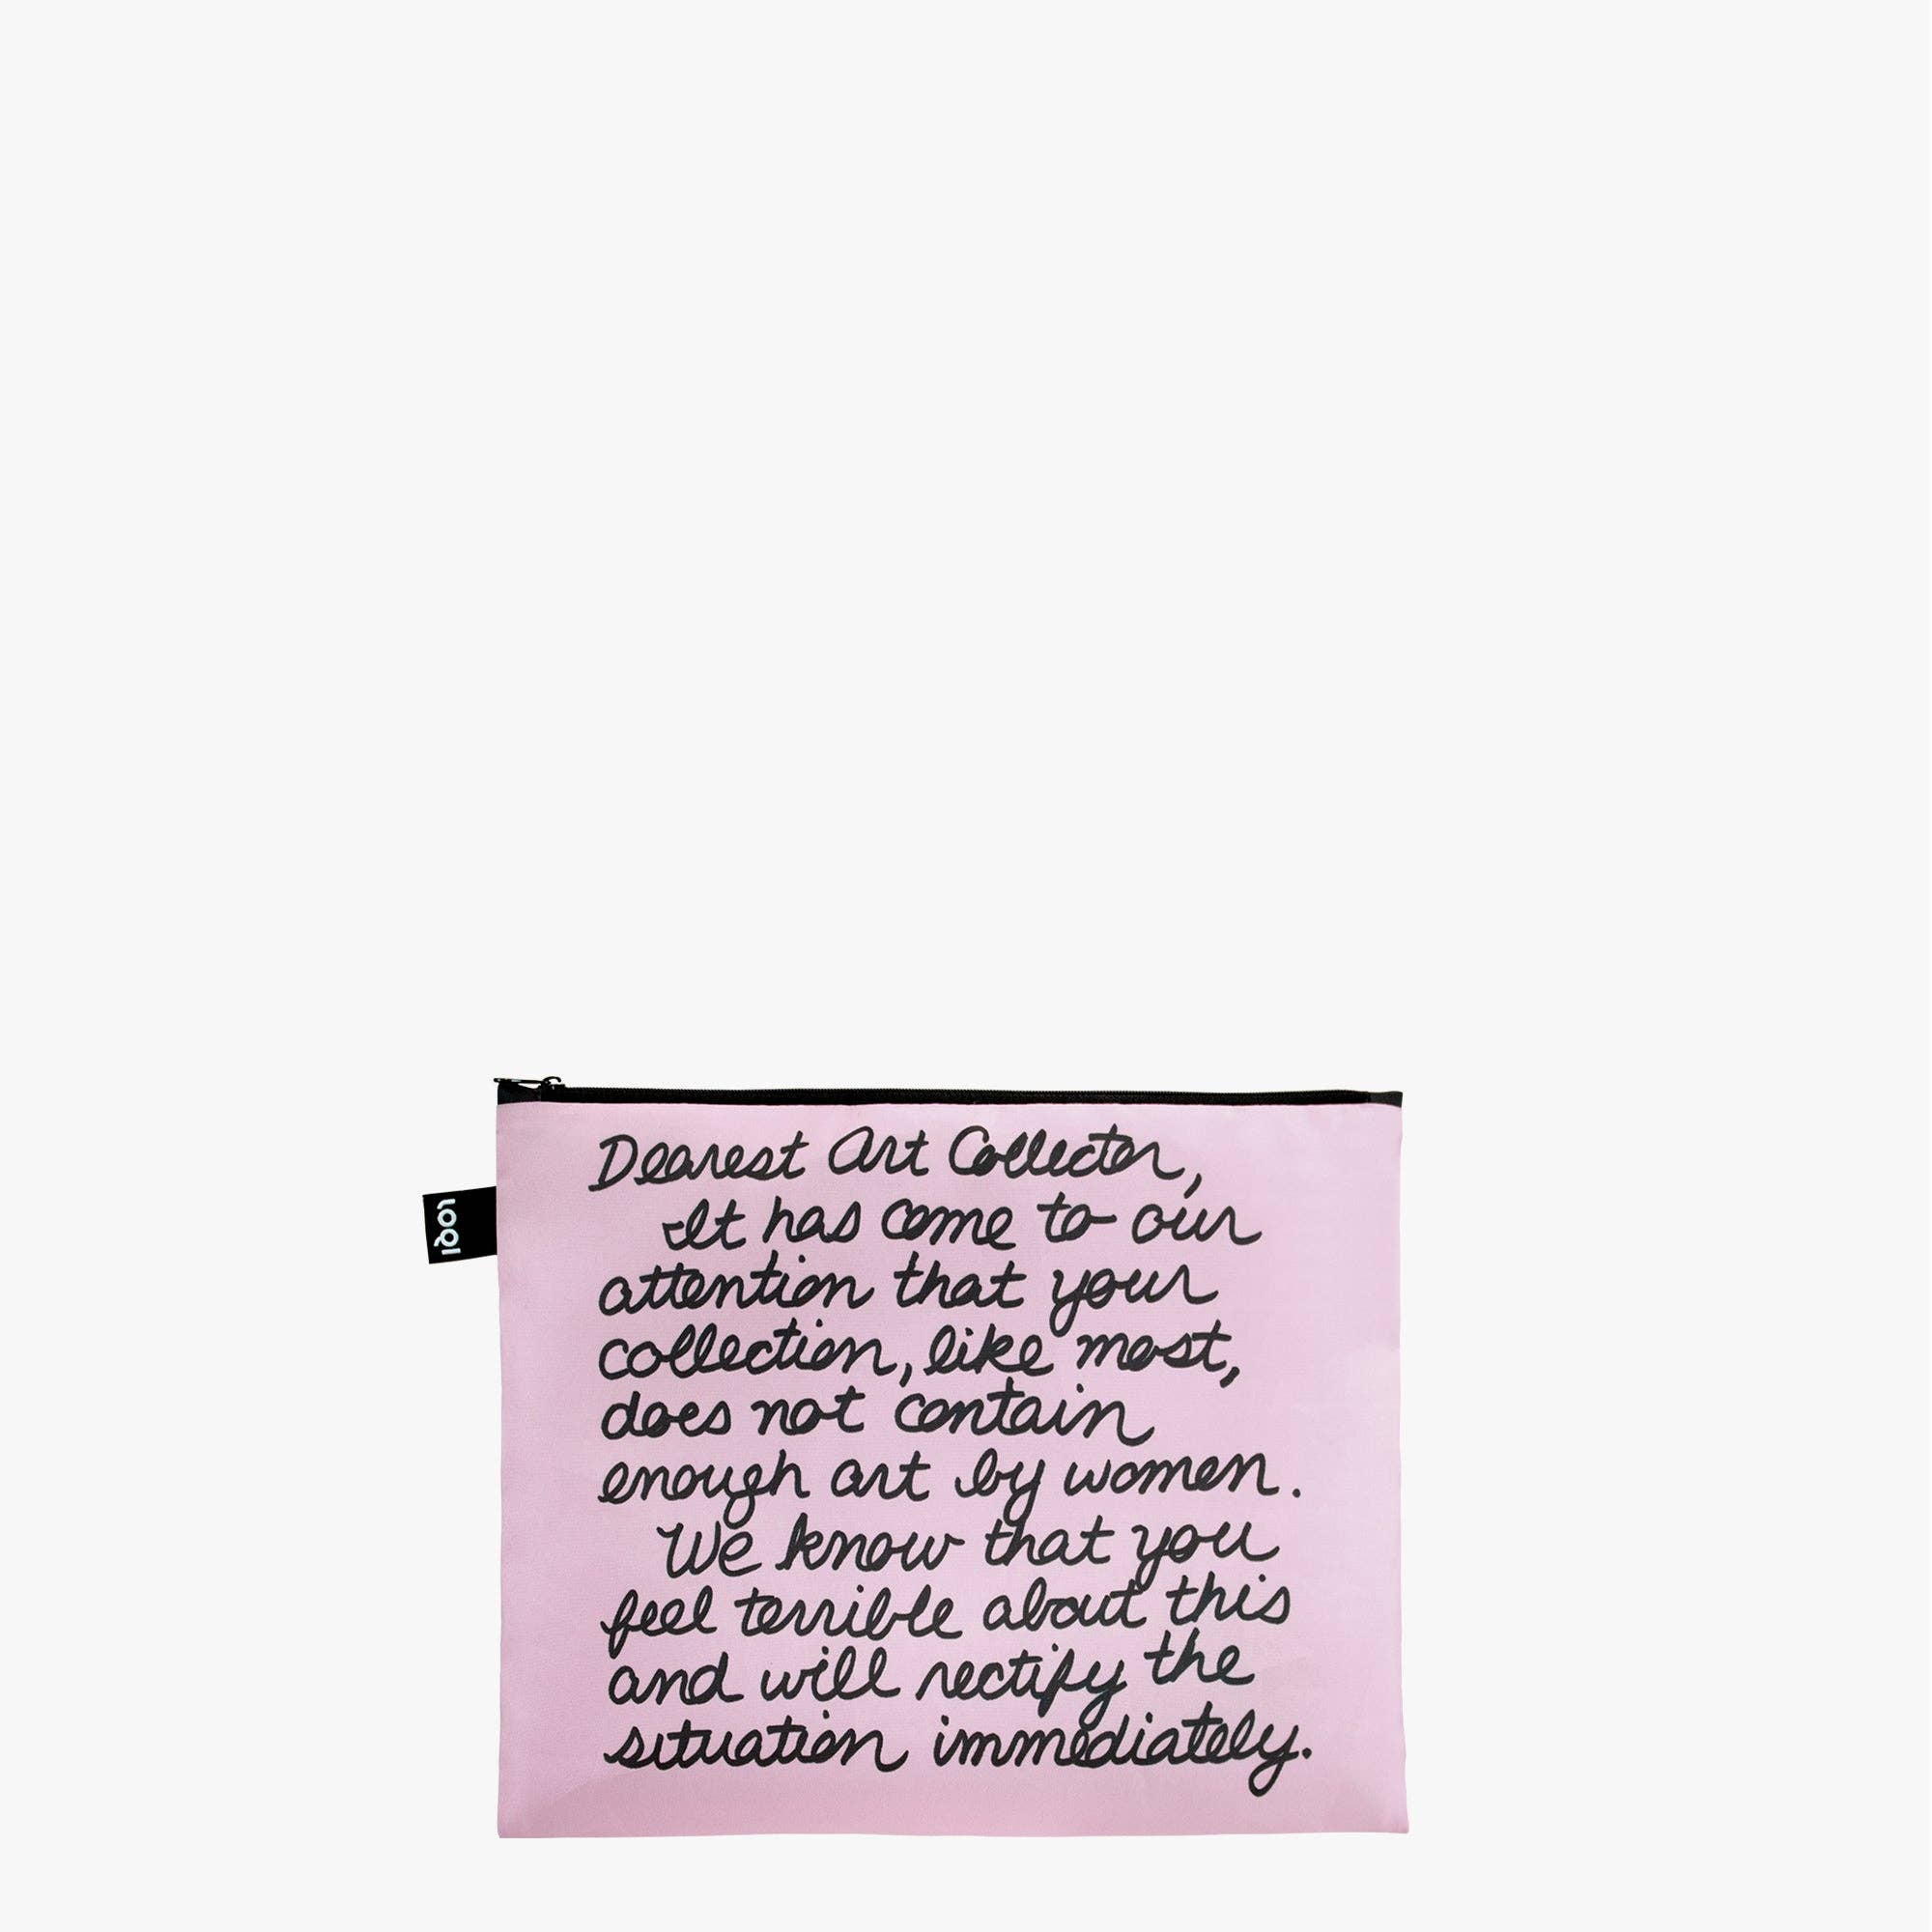 Dearest Art Collector,
It has come to our
attention that your
collection, like most,
does not contain
enough art by women.
We know that you
feel terrible about this
and will rectify the
situation immediately.
LOQI